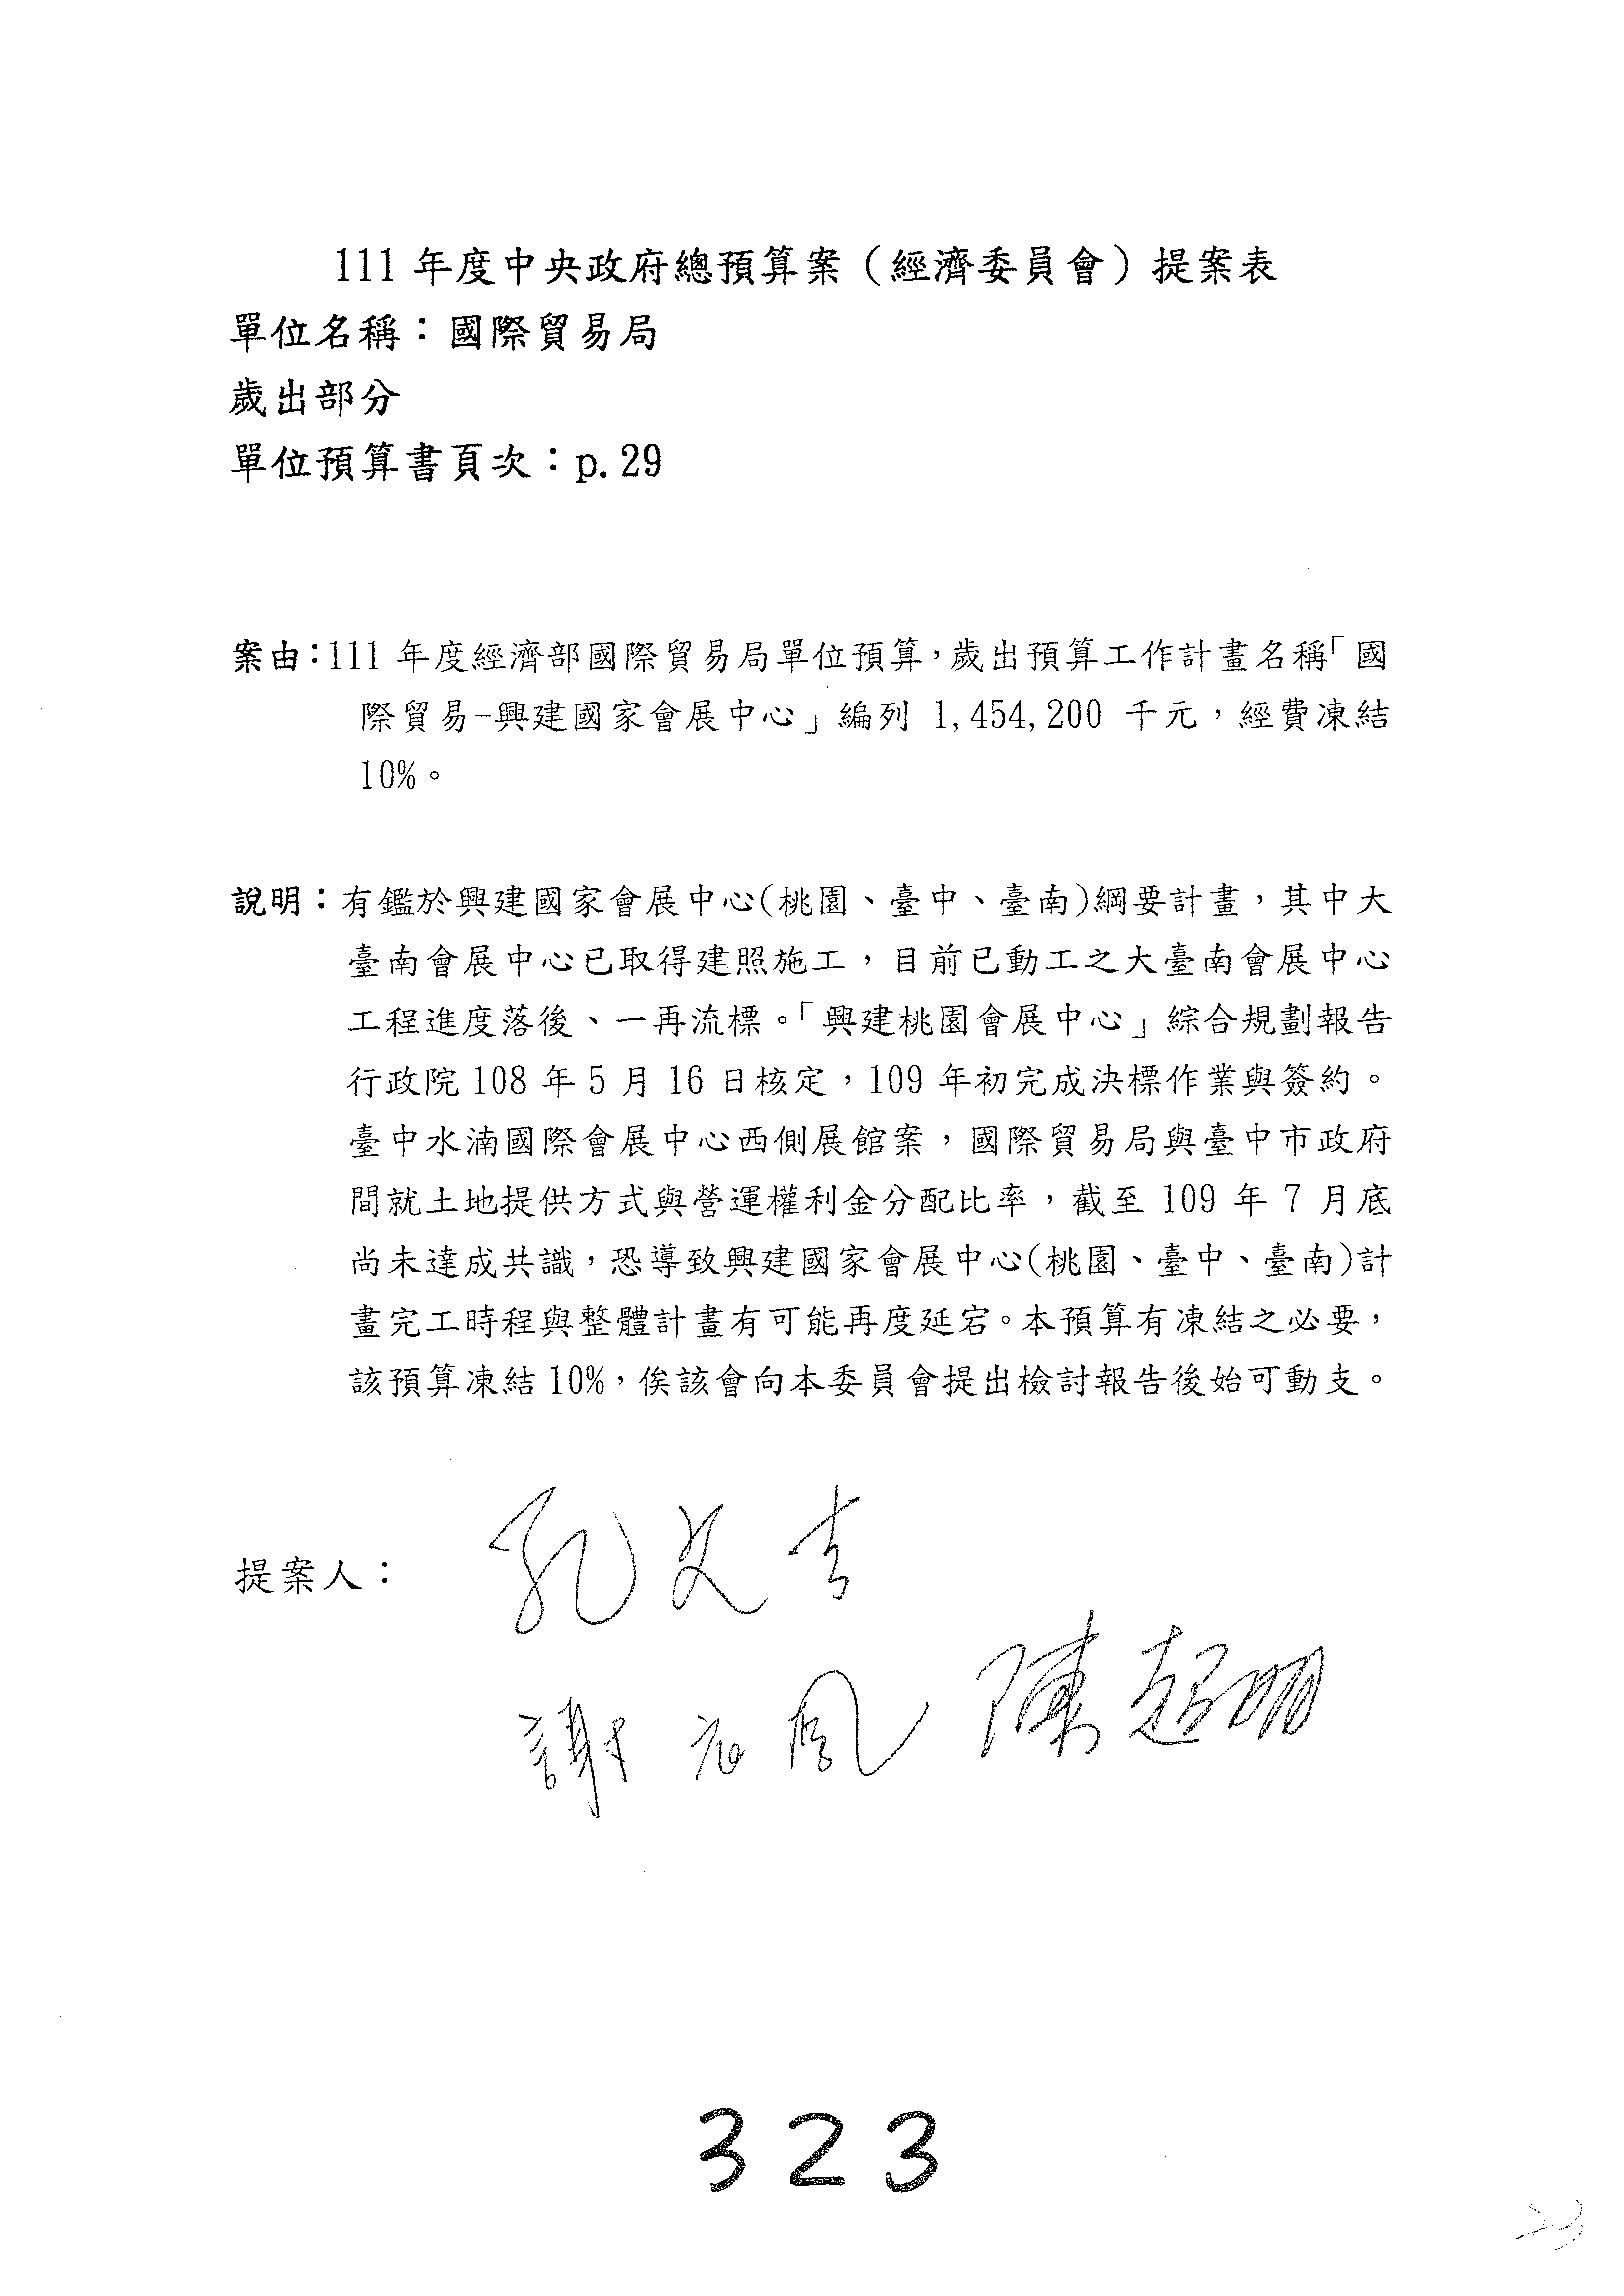 111 年度中央政府總預算案（經濟委員會）提案表
單位名稱：國際貿易局
歲出部分
單位預算書頁次：p.29
案由：111 年度經濟部國際貿易局單位預算，歲出預算工作計畫名稱「國
際貿易-興建國家會展中心」編列 1,454,200 千元，經費凍結
10%。
說明：有鑑於興建國家會展中心(桃園、臺中、臺南)綱要計畫，其中大
臺南會展中心已取得建照施工，目前已動工之大臺南會展中心
工程進度落後、一再流標。「興建桃園會展中心」綜合規劃報告
行政院 108 年 5 月 16 日核定，109 年初完成決標作業與簽約。
臺中水湳國際會展中心西側展館案，國際貿易局與臺中市政府
間就土地提供方式與營運權利金分配比率，截至 109 年 7 月底
尚未達成共識，恐導致興建國家會展中心(桃園、臺中、臺南)計
畫完工時程與整體計畫有可能再度延宕。本預算有凍結之必要，
該預算凍結 10%，俟該會向本委員會提出檢討報告後始可動支。
提案人：
孔文吉
謝衣鳳 陳超明
323
23